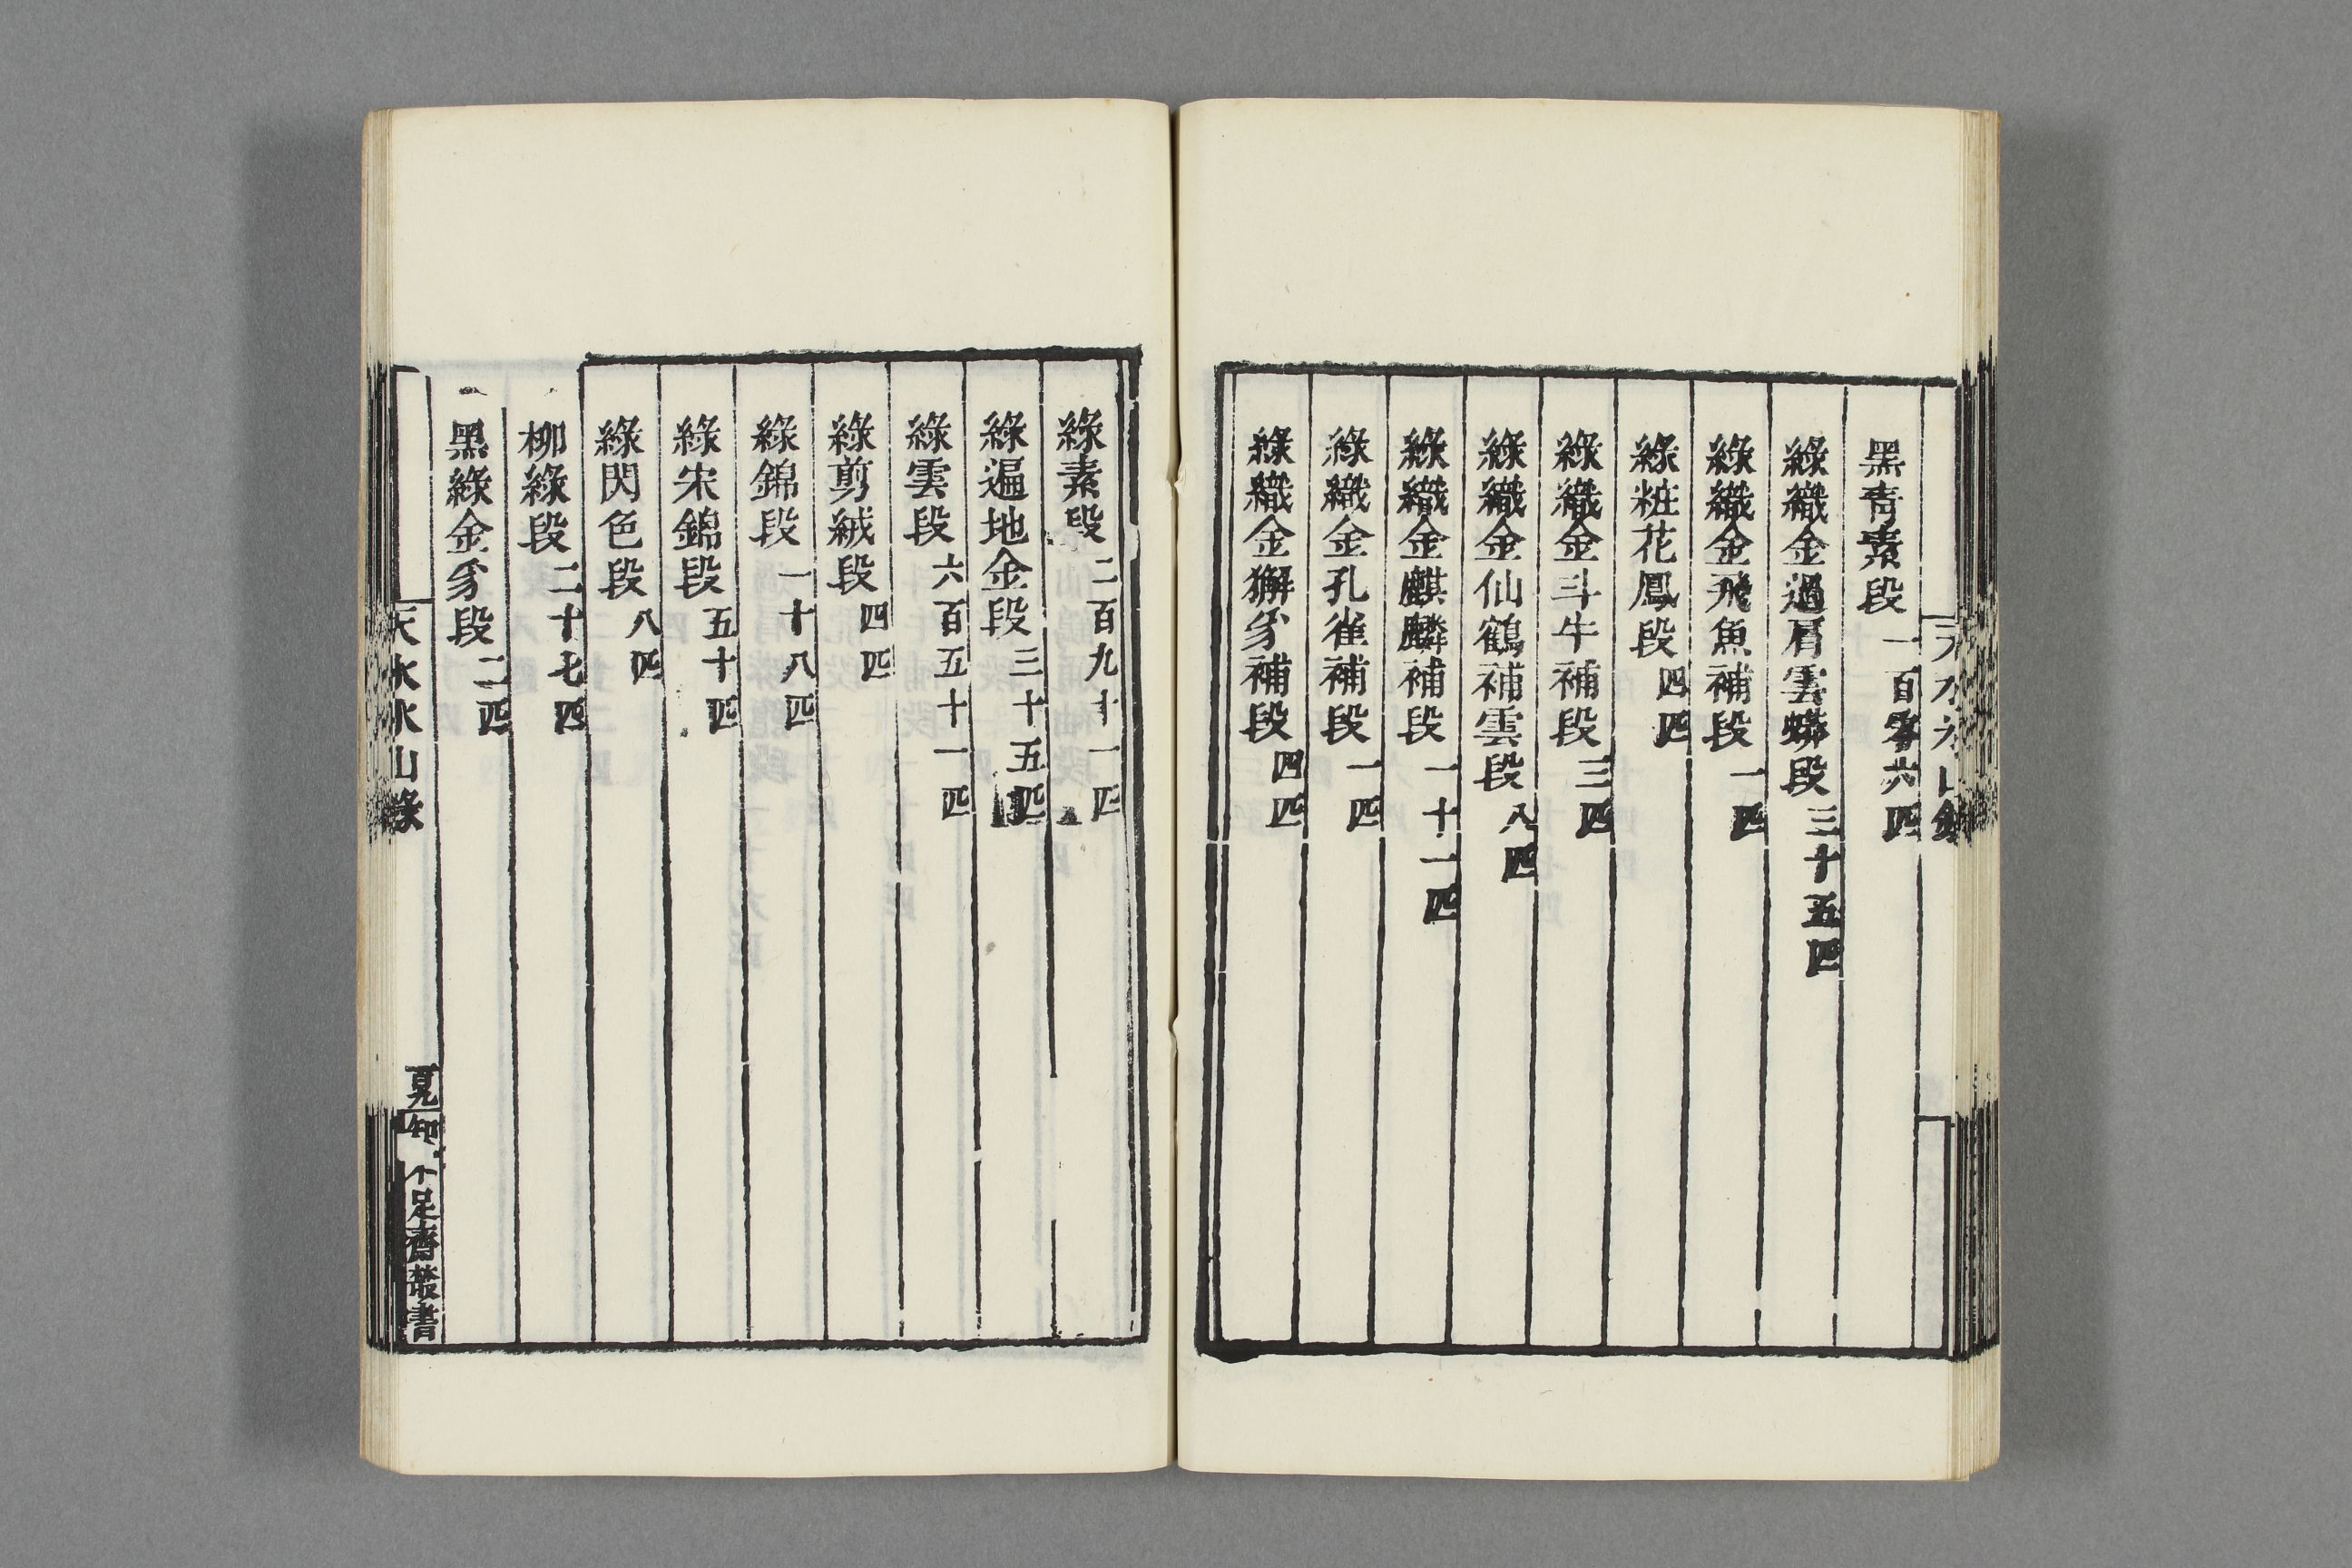 黑青素段一百零六匹
綠織金過肩雲蟒段三十五匹
綠織金飛魚補段一匹
綠粧花鳳段四匹
綠織金斗牛補段三匹
綠織金仙鶴補雲段八匹
綠織金麒麟補段一十一匹
綠織金孔雀補段一匹
綠織金獬豸補段四匹
綠素段二百九十一匹
綠遍地金段三十五匹
綠雲段六百五十一匹
綠剪絨段四匹
綠錦段一十八匹
綠宋錦段五十匹
綠閃色段八匹
柳綠段二十七匹
黑綠金豸段二匹
天水冰山錄
不足齋叢書